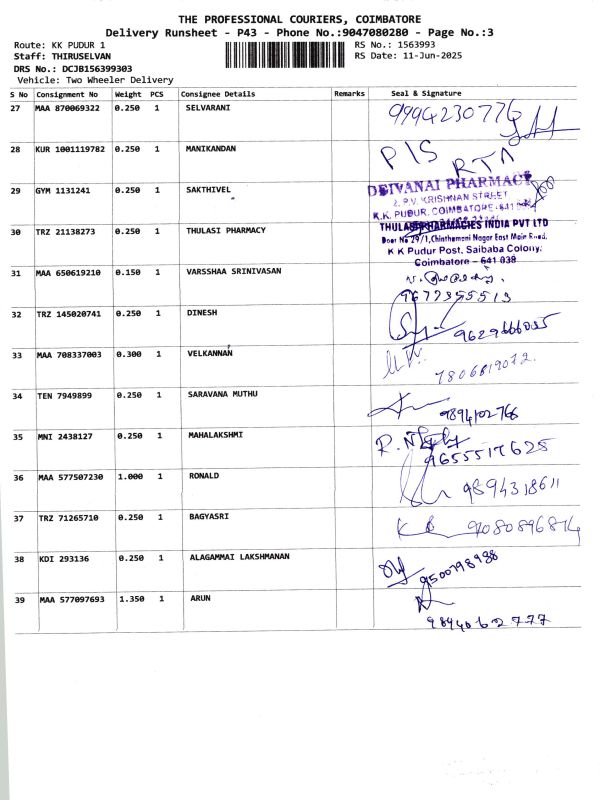 THE PROFESSIONAL COURIERS, COIMBATORE
Delivery Runsheet - P43 - Phone No.:9047080280 - Page No.:3
Route: KK PUDUR 1 RS No.: 1563993
Staff: THIRUSELVAN RS Date: 11-Jun-2025
DRS No.: DCJB156399303
Vehicle: Two Wheeler Delivery
S No Consignment No Weight PCS Consignee Details Remarks Seal & Signature
27 MAA 870069322 0.250 1 SELVARANI 9994230776
28 KUR 1001119782 0.250 1 MANIKANDAN P/S RTA
29 GYM 1131241 0.250 1 SAKTHIVEL
DEIVANAI PHARMACY
2, P.V. KRISHNAN STREET
K.K. PUDUR, COIMBATORE-641
30 TRZ 21138273 0.250 1 THULASI PHARMACY
THULASI PHARMACIES INDIA PVT LTD
Door No 29/1, Chinthamani Nagar East Main Road,
K K Pudur Post, Saibaba Colony,
Coimbatore - 641 038
31 MAA 650619210 0.150 1 VARSSHAA SRINIVASAN
9677355513
32 TRZ 145020741 0.250 1 DINESH
33 MAA 708337003 0.300 1 VELKANNAN 7806819072.
34 TEN 7949899 0.250 1 SARAVANA MUTHU 9894102766
35 MNI 2438127 0.250 1 MAHALAKSHMI
9655517625
36 MAA 577507230 1.000 1 RONALD 9894318611
37 TRZ 71265710 0.250 1 BAGYASRI 9080896814
38 KDI 293136 0.250 1 ALAGAMMAI LAKSHMANAN 9500798988
39 MAA 577097693 1.350 1 ARUN
9894062777